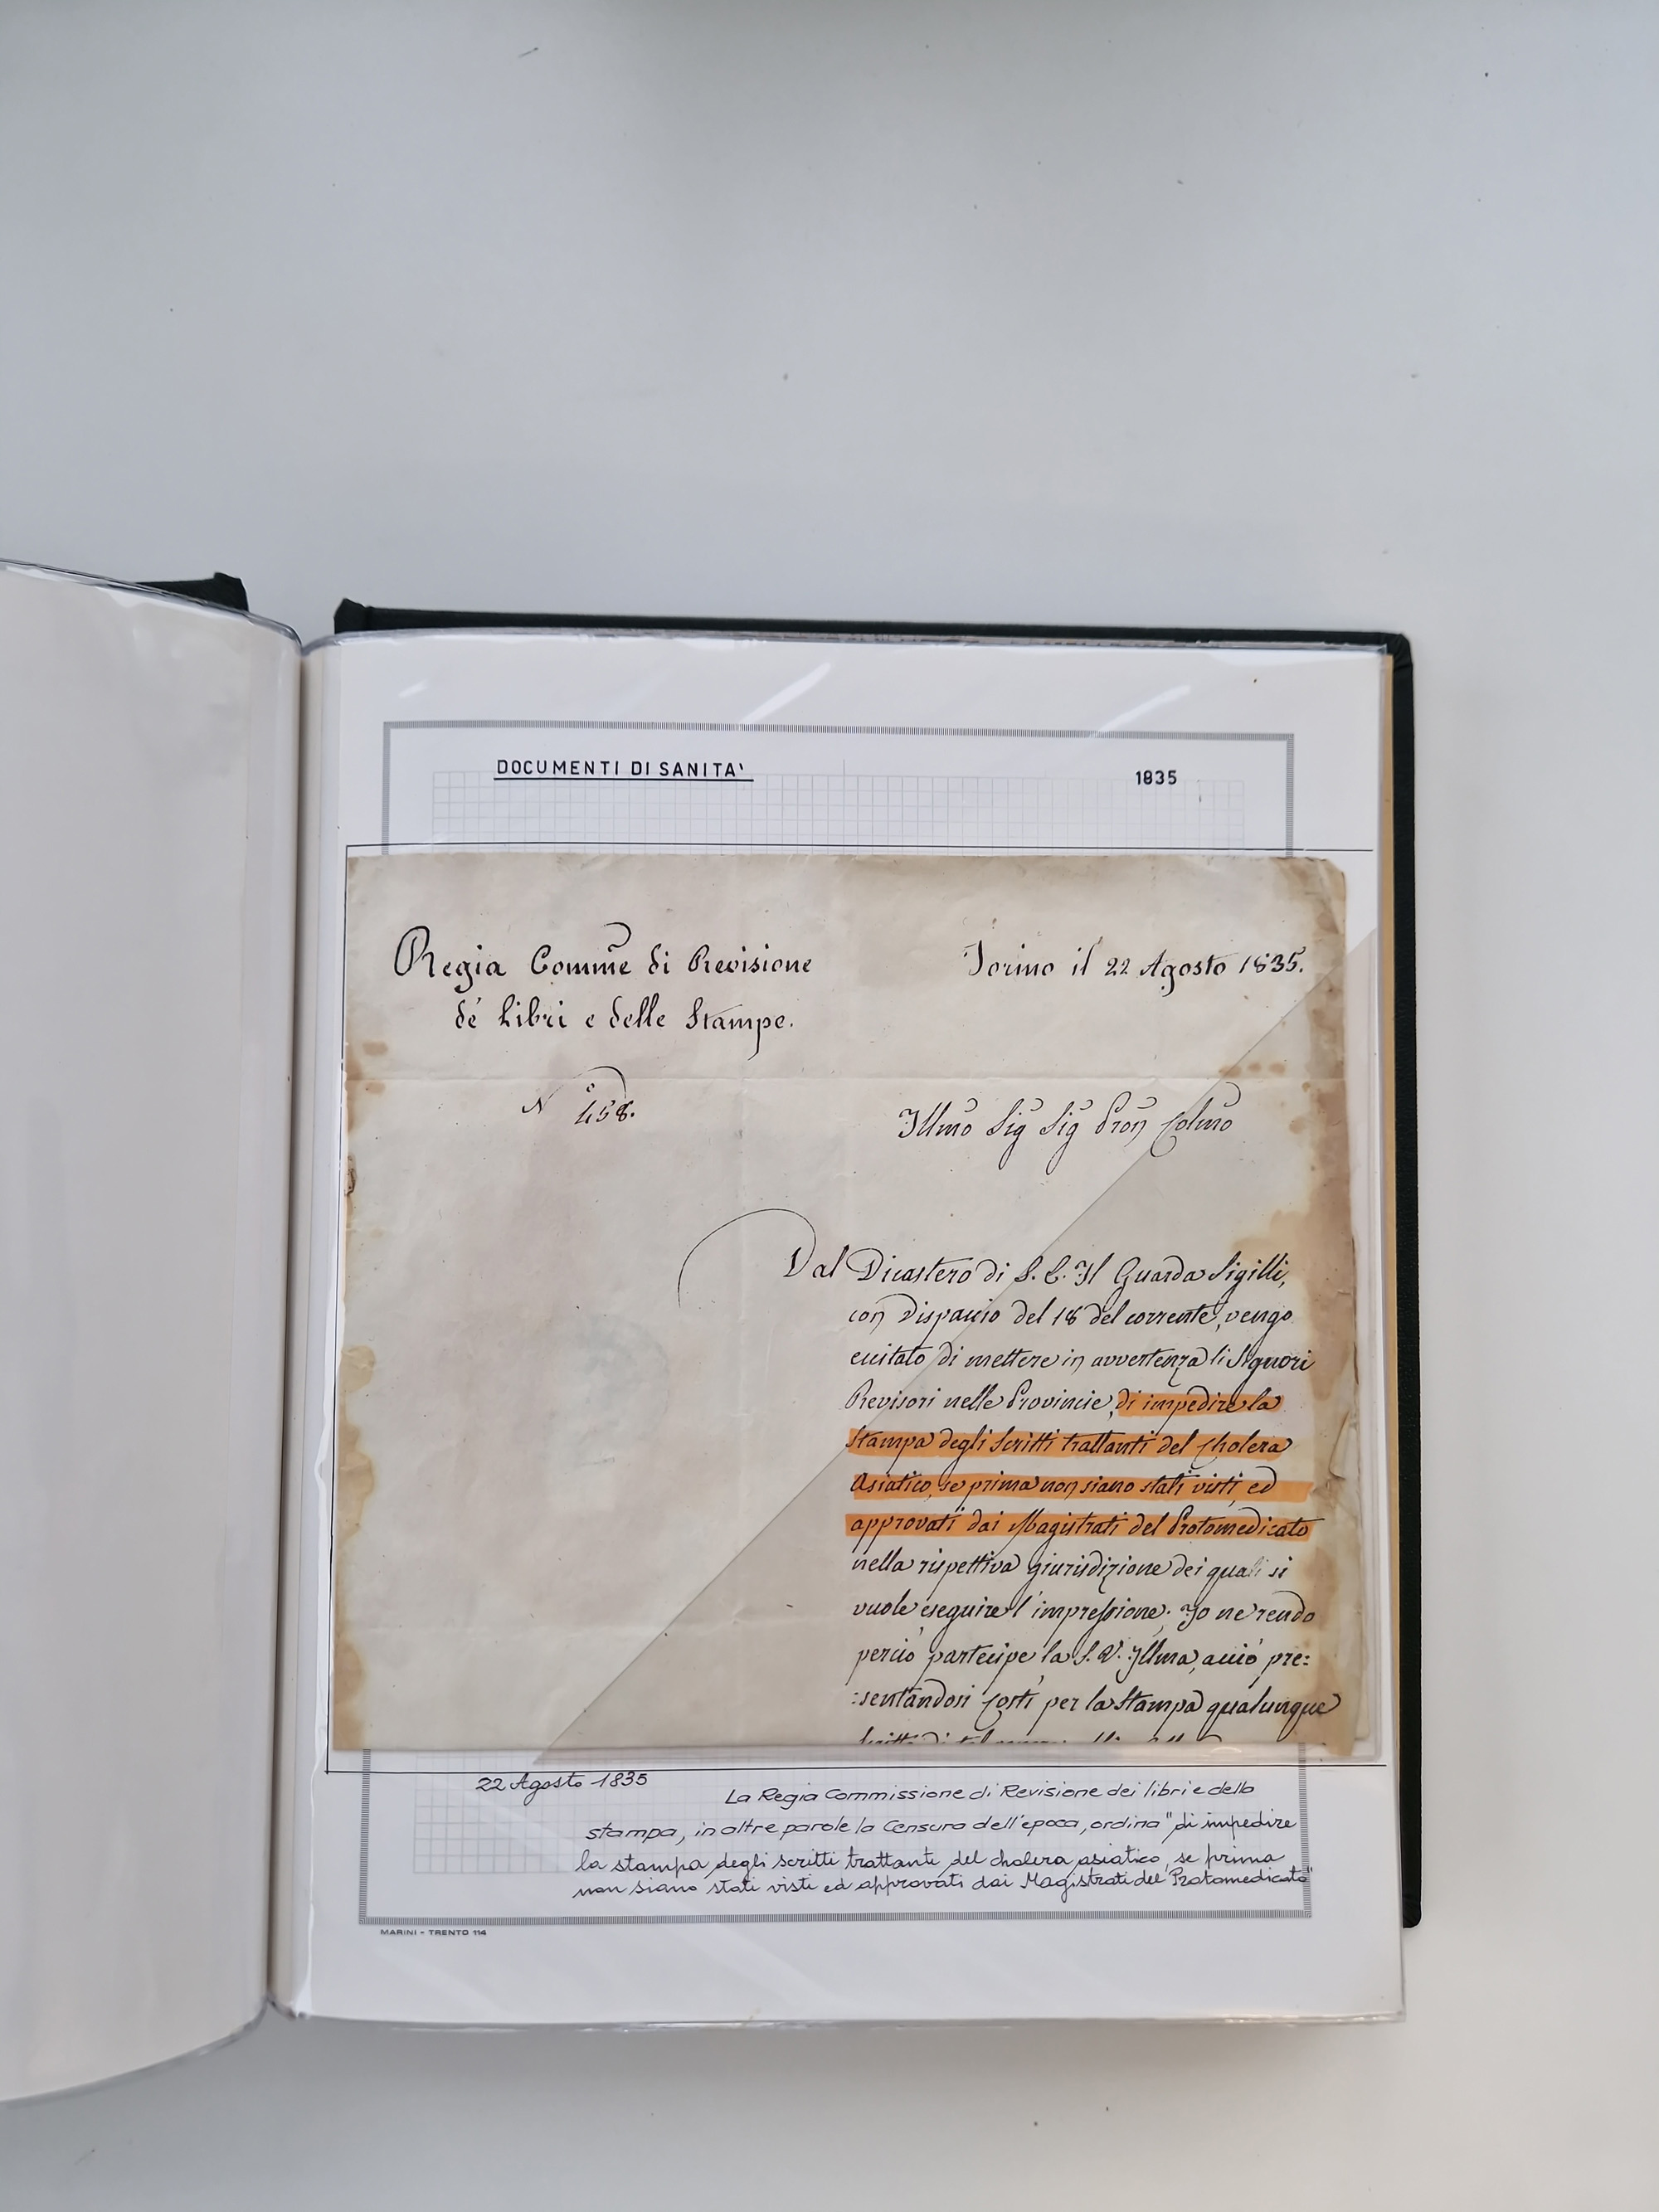 DOCUMENTI DI SANITA'
1835
Regia Comme di Revisione
de' Libri e delle Stampe.
Torino il 22 Agosto 1835.
N° 458.
Illmo Sig Sig Pron Colmo
Dal Dicastero di S. E. Il Guarda Sigilli,
con Dispaccio del 18 del corrente, vengo
eccitato di mettere in avvertenza li Signori
Revisori nelle Provincie, di impedire la
Stampa degli Scritti trattanti del Cholera
Asiatico, se prima non siano stati visti, ed
approvati dai Magistrati del Protomedicato
nella rispettiva giurisdizione dei quali si
vuole eseguire l'impressione; Io ne rendo
perciò partecipe la S. V. Illma, acciò, pre:
:sentandosi costì per la Stampa qualunque
22 Agosto 1835
La Regia Commissione di Revisione dei libri e della
stampa, in altre parole la Censura dell'epoca, ordina "di impedire
la stampa degli scritti trattanti del cholera asiatico, se prima
non siano stati visti ed approvati dai Magistrati del Protomedicato"
MARINI - TRENTO 114